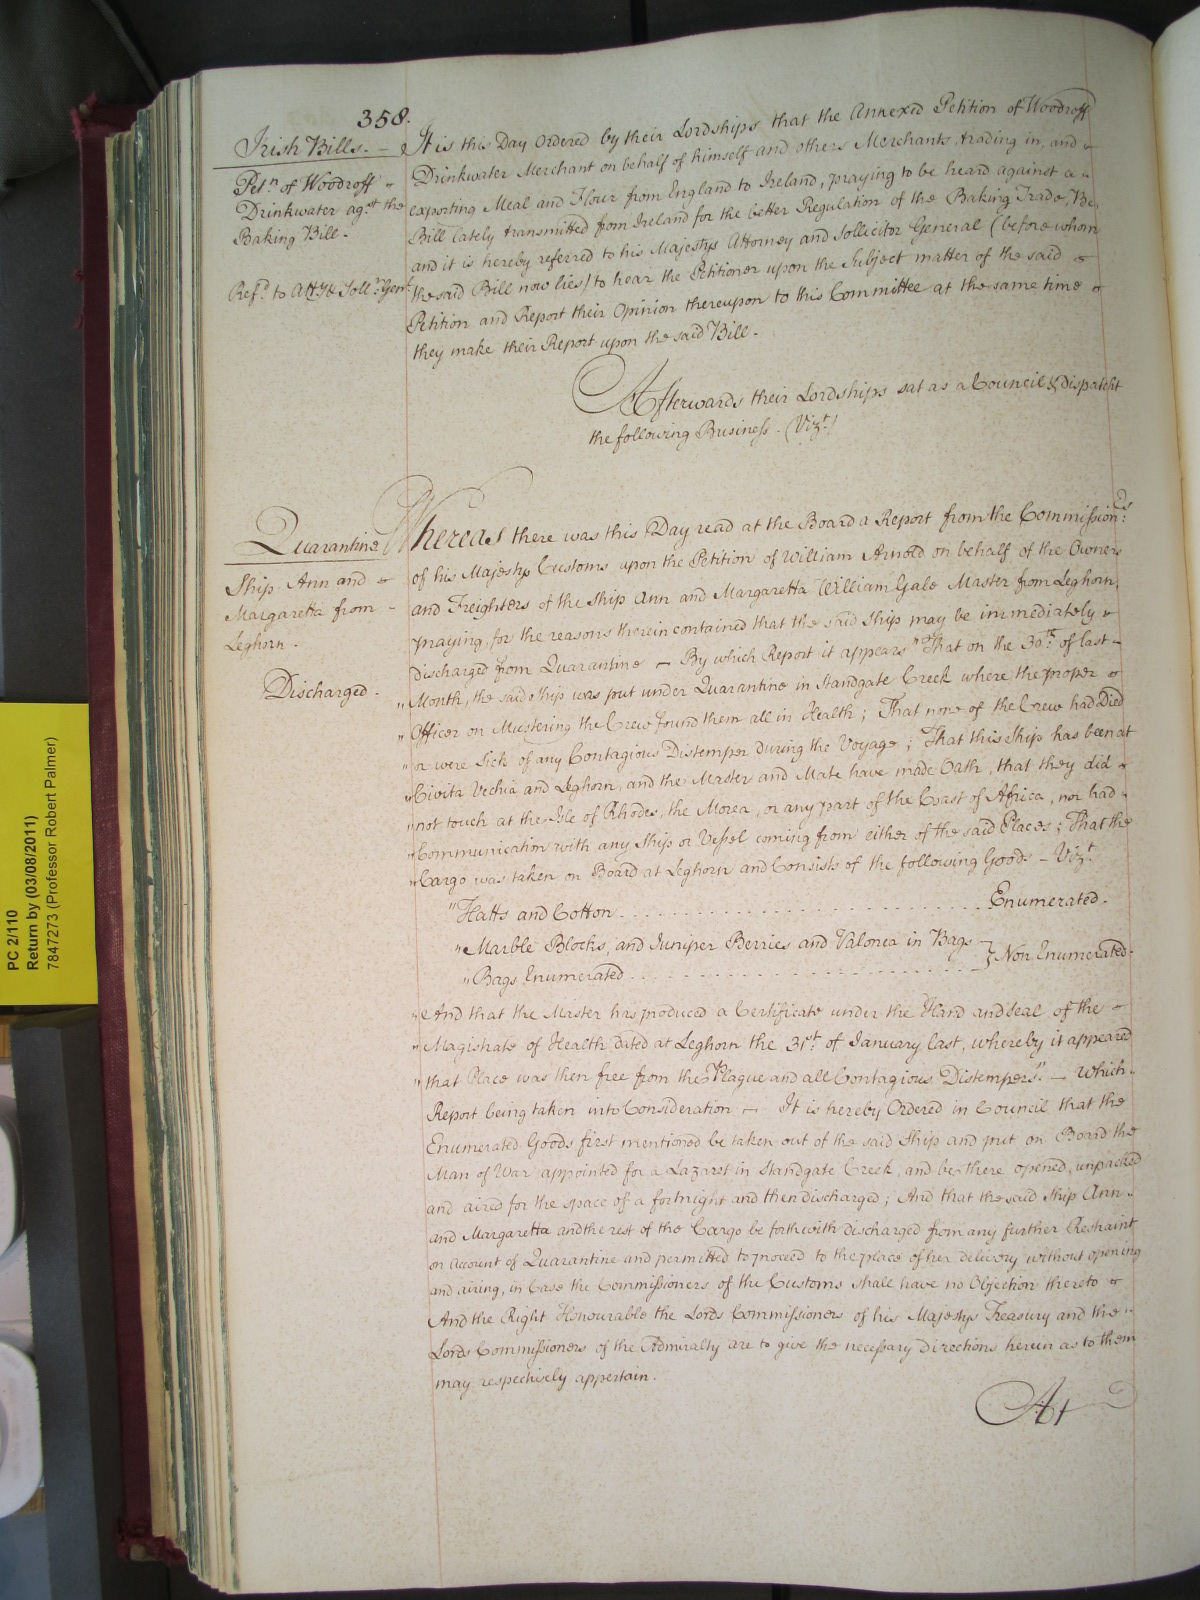 358.
Irish Bills. –
Petn. of Woodroff
Drinkwater agst. the
Baking Bill.
Refd. to Atty & Sollr. Genl.
It is this Day Ordered by their Lordships that the Annexed Petition of Woodroff
Drinkwater Merchant on behalf of himself and others Merchants trading in, and
exporting Meal and Flour from England to Ireland, praying to be heard against a
Bill lately transmitted from Ireland for the better Regulation of the Baking Trade, Be,
and it is hereby referred to his Majestys Attorney and Sollicitor General (before whom
the said Bill now lies) to hear the Petitioner upon the Subject matter of the said
Petition and Report their Opinion thereupon to this Committee at the same time
they make their Report upon the said Bill.
Afterwards their Lordships sat as a Council & dispatcht
the following Business. (Vizt.)
Quarantine
Ship Ann and
Margaretta from
Leghorn.
Discharged.
Whereas there was this Day read at the Board a Report from the Commissionrs.
of his Majestys Customs upon the Petition of William Arnold on behalf of the Owners
and Freighters of the Ship Ann and Margaretta William Gale Master from Leghorn,
praying, for the reasons therein contained that the said Ship may be immediately
discharged from Quarantine – By which Report it appears "That on the 30th. of last
"Month, the said Ship was put under Quarantine in Standgate Creek where the proper
"Officer on Mustering the Crew found them all in Health; That none of the Crew had Died
"or were Sick of any Contagious Distemper during the Voyage; That this Ship has been at
"Civita Vechia and Leghorn, and the Master and Mate have made Oath, that they did
"not touch at the Isle of Rhodes, the Morea, or any part of the Coast of Africa, nor had
"Communication with any Ship or Vessel coming from either of the said Places; That the
"Cargo was taken on Board at Leghorn and Consists of the following Goods – Vizt.
"Hatts and Cotton . . . . . . . . . . . . Enumerated.
"Marble Blocks, and Juniper Berries and Valonea in Bags } Non Enumerated.
"Bags Enumerated . . . . . . . . . . . .
"And that the Master has produced a Certificate under the Hand and Seal of the
"Magistrate of Health, dated at Leghorn the 31st. of January last, whereby it appeared
"that Place was then free from the Plague and all Contagious Distempers" – Which
Report being taken into Consideration – It is hereby Ordered in Council that the
Enumerated Goods first mentioned be taken out of the said Ship and put on Board the
Man of War appointed for a Lazaret in Standgate Creek, and be there opened, unpacked
and aired for the space of a fortnight and then discharged; And that the said Ship Ann
and Margaretta and the rest of the Cargo be forthwith discharged from any further Restraint
on Account of Quarantine and permitted to proceed to the place of her delivery without opening
and airing, in Case the Commissioners of the Customs shall have no Objection thereto
And the Right Honourable the Lords Commissioners of his Majestys Treasury and the
Lords Commissioners of the Admiralty are to give the necessary directions herein as to them
may respectively appertain.
At
PC 2/110
Return by (03/08/2011)
7847273 (Professor Robert Palmer)